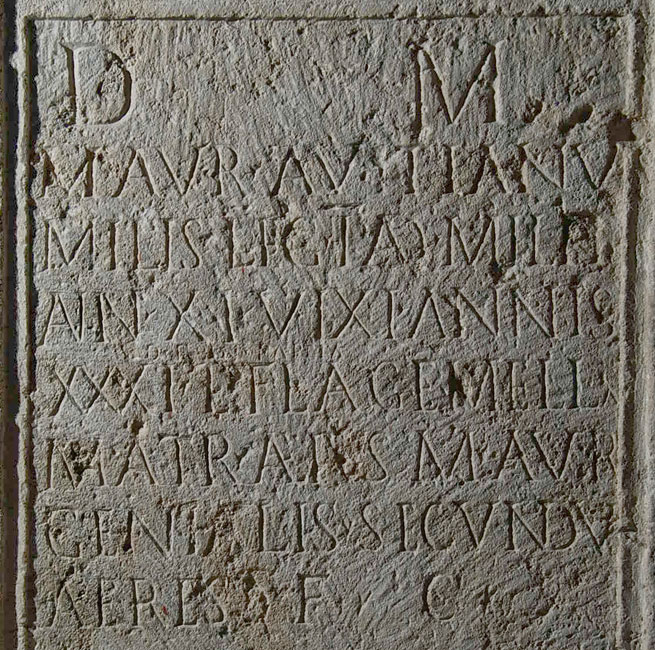 D M
M AVR AV TIANV
MILIS LEG I A MILI
AIN XI VIXI ANNIS
XXXI ET FLA GEMELLA
MATRARIS M AVR
GENIALIS SICVNDV
AERES F C